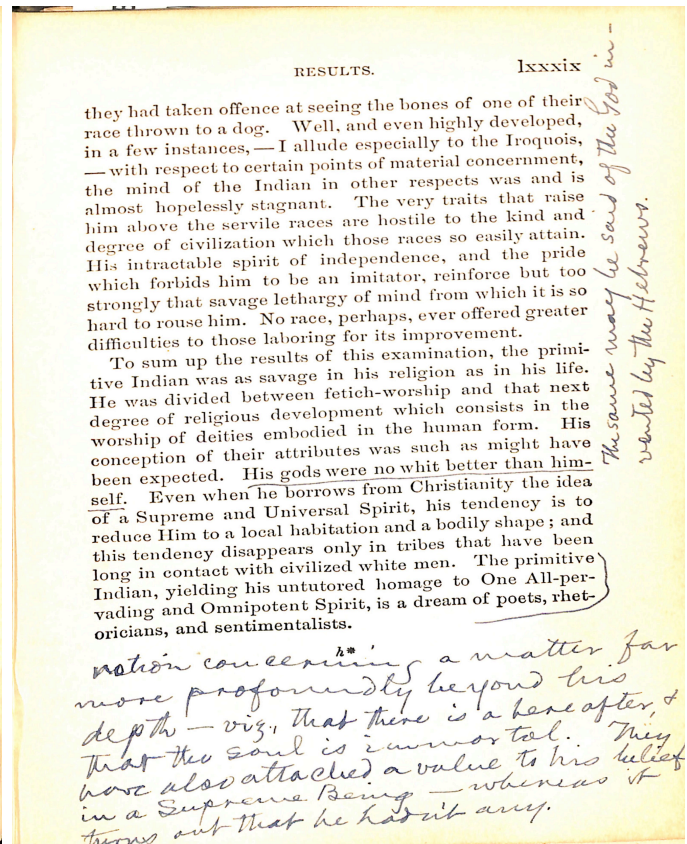 RESULTS. lxxxix
they had taken offence at seeing the bones of one of their
race thrown to a dog. Well, and even highly developed,
in a few instances, — I allude especially to the Iroquois,
— with respect to certain points of material concernment,
the mind of the Indian in other respects was and is
almost hopelessly stagnant. The very traits that raise
him above the servile races are hostile to the kind and
degree of civilization which those races so easily attain.
His intractable spirit of independence, and the pride
which forbids him to be an imitator, reinforce but too
strongly that savage lethargy of mind from which it is so
hard to rouse him. No race, perhaps, ever offered greater
difficulties to those laboring for its improvement.
To sum up the results of this examination, the primi-
tive Indian was as savage in his religion as in his life.
He was divided between fetich-worship and that next
degree of religious development which consists in the
worship of deities embodied in the human form. His
conception of their attributes was such as might have
been expected. His gods were no whit better than him-
self. Even when he borrows from Christianity the idea
of a Supreme and Universal Spirit, his tendency is to
reduce Him to a local habitation and a bodily shape; and
this tendency disappears only in tribes that have been
long in contact with civilized white men. The primitive
Indian, yielding his untutored homage to One All-per-
vading and Omnipotent Spirit, is a dream of poets, rhet-
oricians, and sentimentalists.
h*
The same may be said of the God in-
vented by the Hebrews.
notion concerning a matter far
more profoundly beyond his
depth — viz., that there is a hereafter, &
that the soul is immortal. They
have also attached a value to his belief
in a Supreme Being — whereas it
turns out that he hadn't any.